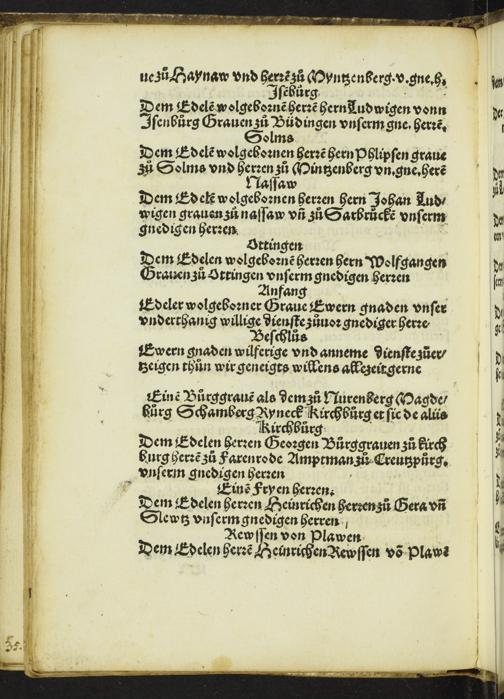 ue zů Haynaw vnd herrē zů Myntzenberg. v. gne. h.
Jsebürg
Dem Edelē wolgebornē herrē hern Ludwigen vonn
Jsenbürg Grauen zů Büdingen vnserm gne. herrē.
Solms
Dem Edelē wolgebornen herrē hern Phlipsen graue
zů Solms vnd herrē zů Mintzenberg vn. gne. herē
Nassaw
Dem Edelē wolgebornen herren hern Johan Lud⸗
wigen grauen zů nassaw vñ zů Sarbrückē vnserm
gnedigen herren
Ottingen
Dem Edelen wolgebornē herren hern Wolfgangen
Grauen zů Ottingen vnserm gnedigen herren
Anfang
Edeler wolgeborner Graue Ewern gnaden vnser
vnderthanig willige dienste zůuor gnediger herre
Beschlüs
Ewern gnaden wilferige vnd anneme dienste zůer⸗
tzeigen thůn wir geneigts willens allezeit gerne
Einē Bürggrauē als dem zů Nurenberg Magde⸗
bürg Schamberg Ryneck Kirchbürg et sic de aliis
Kirchbürg
Dem Edelen herren Georgen Bürggrauen zů kirch
burg herrē zů Farenrode Amptman zů Creutzpürg.
vnserm gnedigen herren
Einē Fryen herren.
Dem Edelen herren Heinrichen herren zů Gera vñ
Slewtz vnserm gnedigen herren
Rewssen von Plawen
Dem Edelen herrē Heinrichen Rewssen vō Plawē